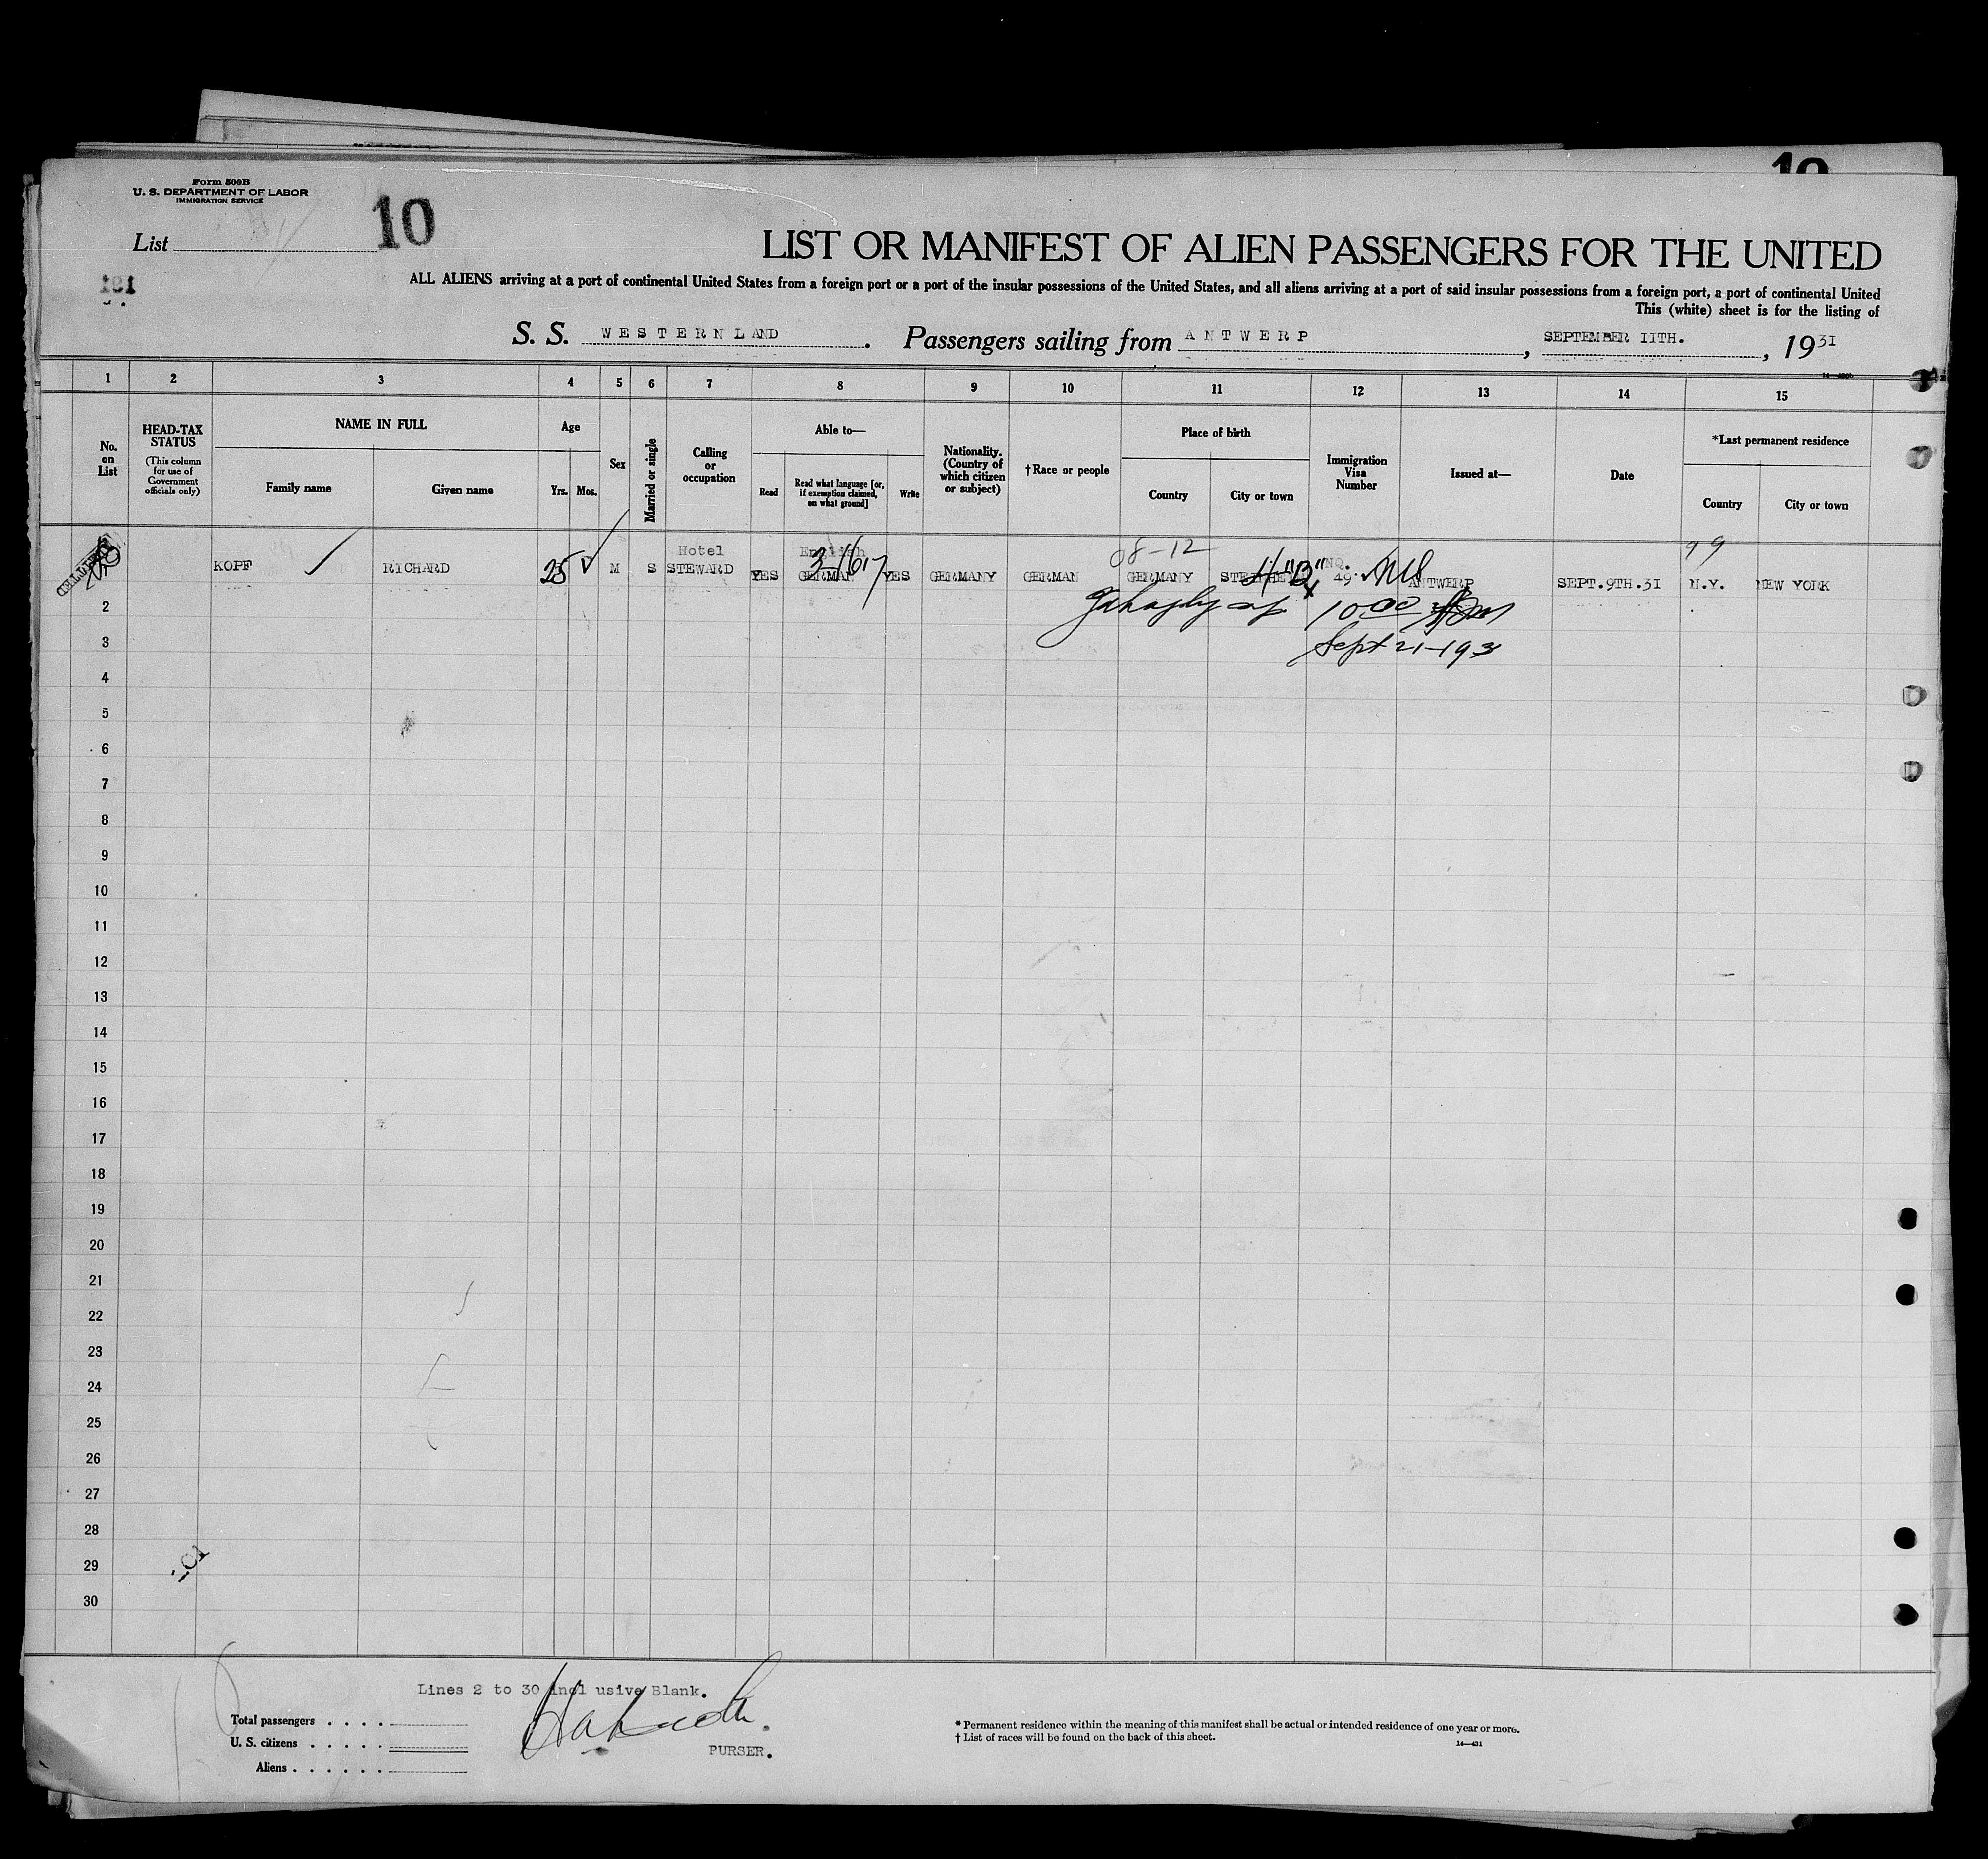 10
Form 500B
U. S. DEPARTMENT OF LABOR
IMMIGRATION SERVICE
List 10
LIST OR MANIFEST OF ALIEN PASSENGERS FOR THE UNITED
ALL ALIENS arriving at a port of continental United States from a foreign port or a port of the insular possessions of the United States, and all aliens arriving at a port of said insular possessions from a foreign port, a port of continental United
This (white) sheet is for the listing of
S. S. WESTERNLAND. Passengers sailing from ANTWERP, SEPTEMBER 11TH., 1931
1 2 3 4 5 6 7 8 9 10 11 12 13 14 15
No. on List
HEAD-TAX STATUS
(This column for use of Government officials only)
NAME IN FULL
Family name
Given name
Age
Yrs.
Mos.
Sex
Married or single
Calling or occupation
Able to—
Read
Read what language [or, if exemption claimed, on what ground]
Write
Nationality. (Country of which citizen or subject)
†Race or people
Place of birth
Country
City or town
Immigration Visa Number
Issued at—
Date
*Last permanent residence
Country
City or town
08-12
99
Hotel English
KOPF RICHARD 25 M S STEWARD YES GERMAN YES GERMANY GERMAN GERMANY 49 ANTWERP SEPT.9TH.31 N.Y. NEW YORK
4 "B"
10 00
Sept 21-193
2
3
4
5
6
7
8
9
10
11
12
13
14
15
16
17
18
19
20
21
22
23
24
25
26
27
28
29
30
Lines 2 to 30 incl usive Blank.
Total passengers
U. S. citizens
Aliens
PURSER.
* Permanent residence within the meaning of this manifest shall be actual or intended residence of one year or more.
† List of races will be found on the back of this sheet.
14—431